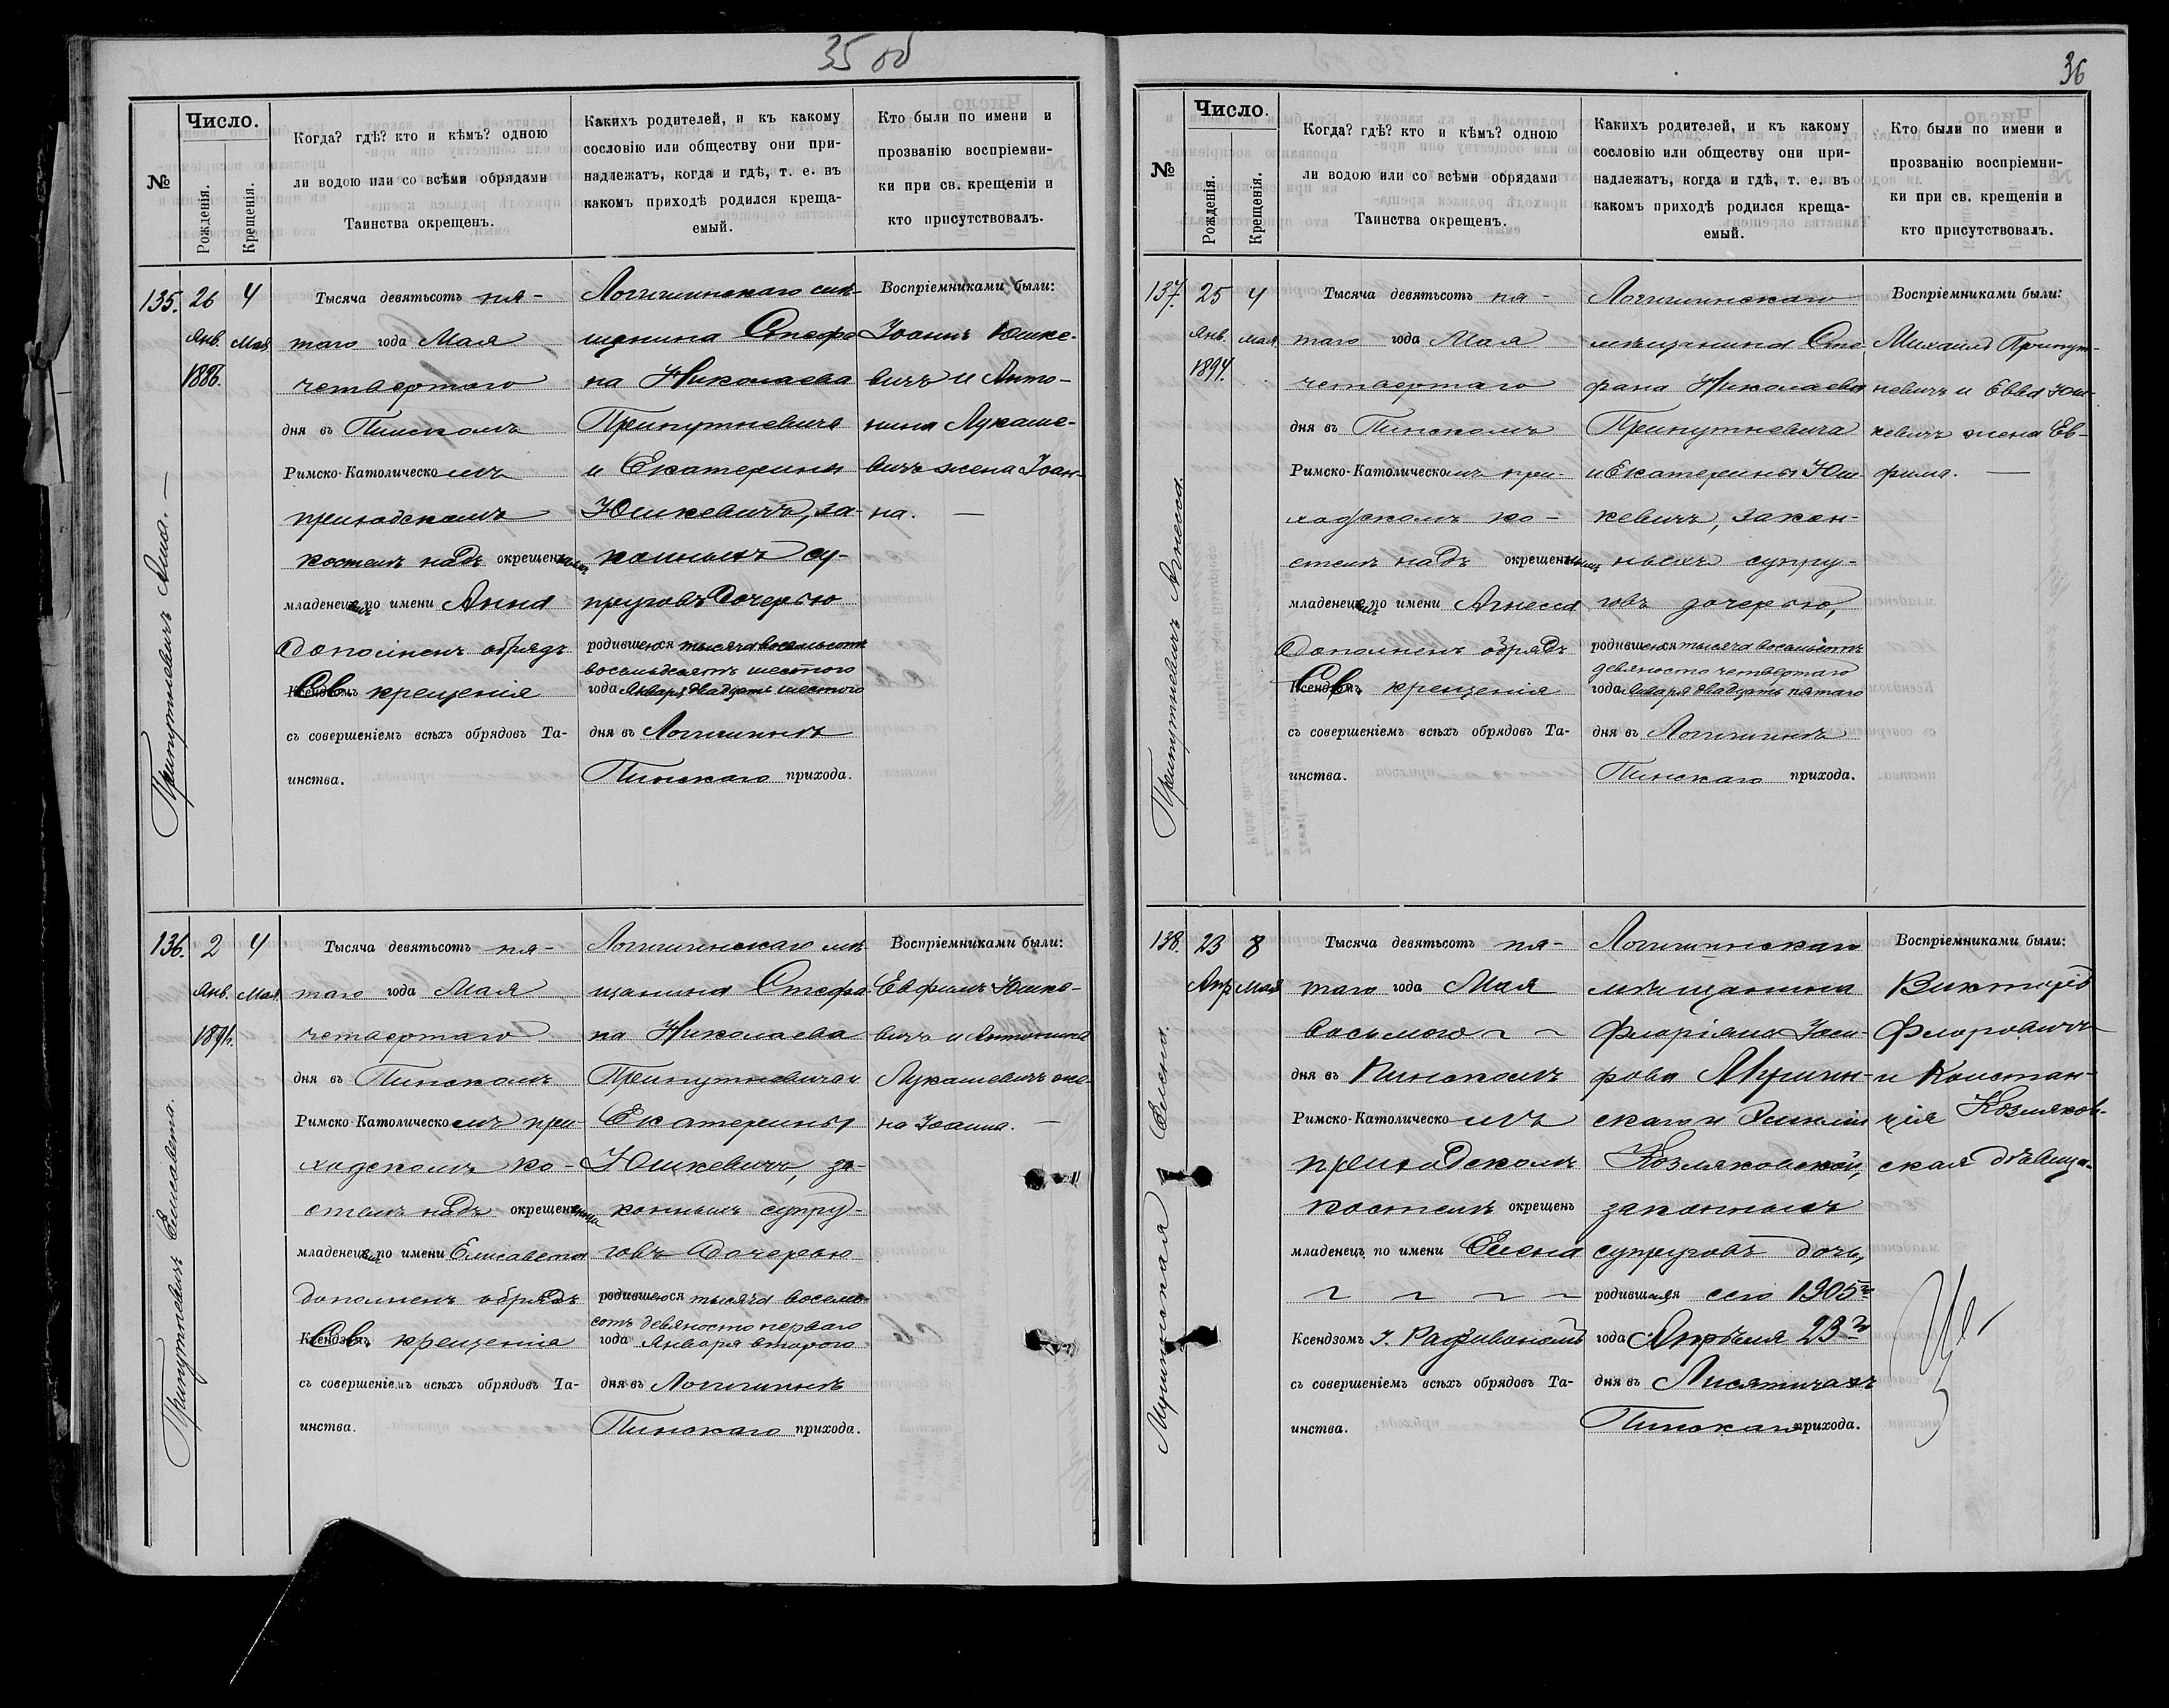 35 об
№
Число.
Рожденія.
Крещенія.
Когда? гдѣ? кто и кѣмъ? одною
ли водою или со всѣми обрядами
Таинства окрещенъ.
Какихъ родителей, и къ какому
сословію или обществу они при-
надлежатъ, когда и гдѣ, т. е. въ
какомъ приходѣ родился креща-
емый.
Кто были по имени и
прозванію воспріемни-
ки при св. крещеніи и
кто присутствовалъ.
135.
Припутневичъ Анна. —
26
Янв.
1886.
4
Мая
Тысяча девятьсотъ пя-
таго года Мая
четвертаго
дня въ Пинскомъ
Римско-Католическомъ
приходскомъ
костелѣ надъ окрещеннымъ
младенцемъ по имени Анна
дополненъ обрядъ
Св. крещенія
съ совершеніемъ всѣхъ обрядовъ Та-
инства.
Логишинскаго мѣ-
щанина Стефа
на Николаева
Припутневича
и Екатерины
Юшкевичъ, за-
конныхъ су-
пруговъ дочерью
родившеюся тысяча восемьсотъ
восемьдесятъ шестого
года Января двадцать шестого
дня въ Логишинѣ
Пинскаго прихода.
Воспріемниками были:
Іоаннъ Юшке-
вичъ и Анто-
нина Лукаше-
вичъ жена Іоан-
на. —
136.
Припутневичъ Елисавета.
2
Янв.
1891.
4
Мая
Тысяча девятьсотъ пя-
таго года Мая
четвертаго
дня въ Пинскомъ
Римско-Католическомъ при-
ходскомъ ко-
стелѣ надъ окрещеннымъ
младенцемъ по имени Елисавета
дополненъ обрядъ
Св. крещенія
съ совершеніемъ всѣхъ обрядовъ Та-
инства.
Логишинскаго мѣ
щанина Стефа-
на Николаева
Припутневича и
Екатерины
Юшкевичъ, за-
конныхъ супру-
говъ дочерью
родившеюся тысяча восемь
сотъ девяносто перваго
года Января второго
дня въ Логишинѣ
Пинскаго прихода.
Воспріемниками были:
Евфимъ Юшке-
вичъ и Антонина
Лукашевичъ же-
на Іоанна. —
36
№
Число.
Рожденія.
Крещенія.
Когда? гдѣ? кто и кѣмъ? одною
ли водою или со всѣми обрядами
Таинства окрещенъ.
Какихъ родителей, и къ какому
сословію или обществу они при-
надлежатъ, когда и гдѣ, т. е. въ
какомъ приходѣ родился креща-
емый.
Кто были по имени и
прозванію воспріемни-
ки при св. крещеніи и
кто присутствовалъ.
137.
Припутневичъ Агнесса.
25
Янв.
1894.
4
Мая
Тысяча девятьсотъ пя-
таго года Мая
четвертаго
дня въ Пинскомъ
Римско-Католическомъ при-
ходскомъ ко-
стелѣ надъ окрещеннымъ
младенцемъ по имени Агнесса
дополненъ обрядъ
Св. крещенія
съ совершеніемъ всѣхъ обрядовъ Та-
инства.
Логишинскаго
мѣщанина Сте
фана Николаева
Припутневича
и Екатерины Юш
кевичъ, закон-
ныхъ супру-
говъ дочерью,
родившеюся тысяча восемьсотъ
девяносто четвертаго
года Января двадцать пятаго
дня въ Логишинѣ
Пинскаго прихода.
Воспріемниками были:
Михаилъ Припут-
невичъ и Евва Юш-
кевичъ жена Ев-
фима. —
138.
Елена.
23
Апр
8
Мая
Тысяча девятьсотъ пя-
таго года Мая
восьмого
дня въ Пинскомъ
Римско-Католическомъ
приходскомъ
костелѣ окрещенъ
младенецъ по имени Елена
Ксендзомъ
съ совершеніемъ всѣхъ обрядовъ Та-
инства.
Логишинскаго
мѣщанина
Флоріана Іоси-
фова
скаго и Эмиліи
Козляковской,
законныхъ
супруговъ дочь,
родившаяся сего 1905го
года Апрѣля 23го
дня въ Лисятичахъ
Пинскаго прихода.
Воспріемниками были:
Викторъ
Флоровичъ
и Констан-
ція Козляков-
ская дѣвица.